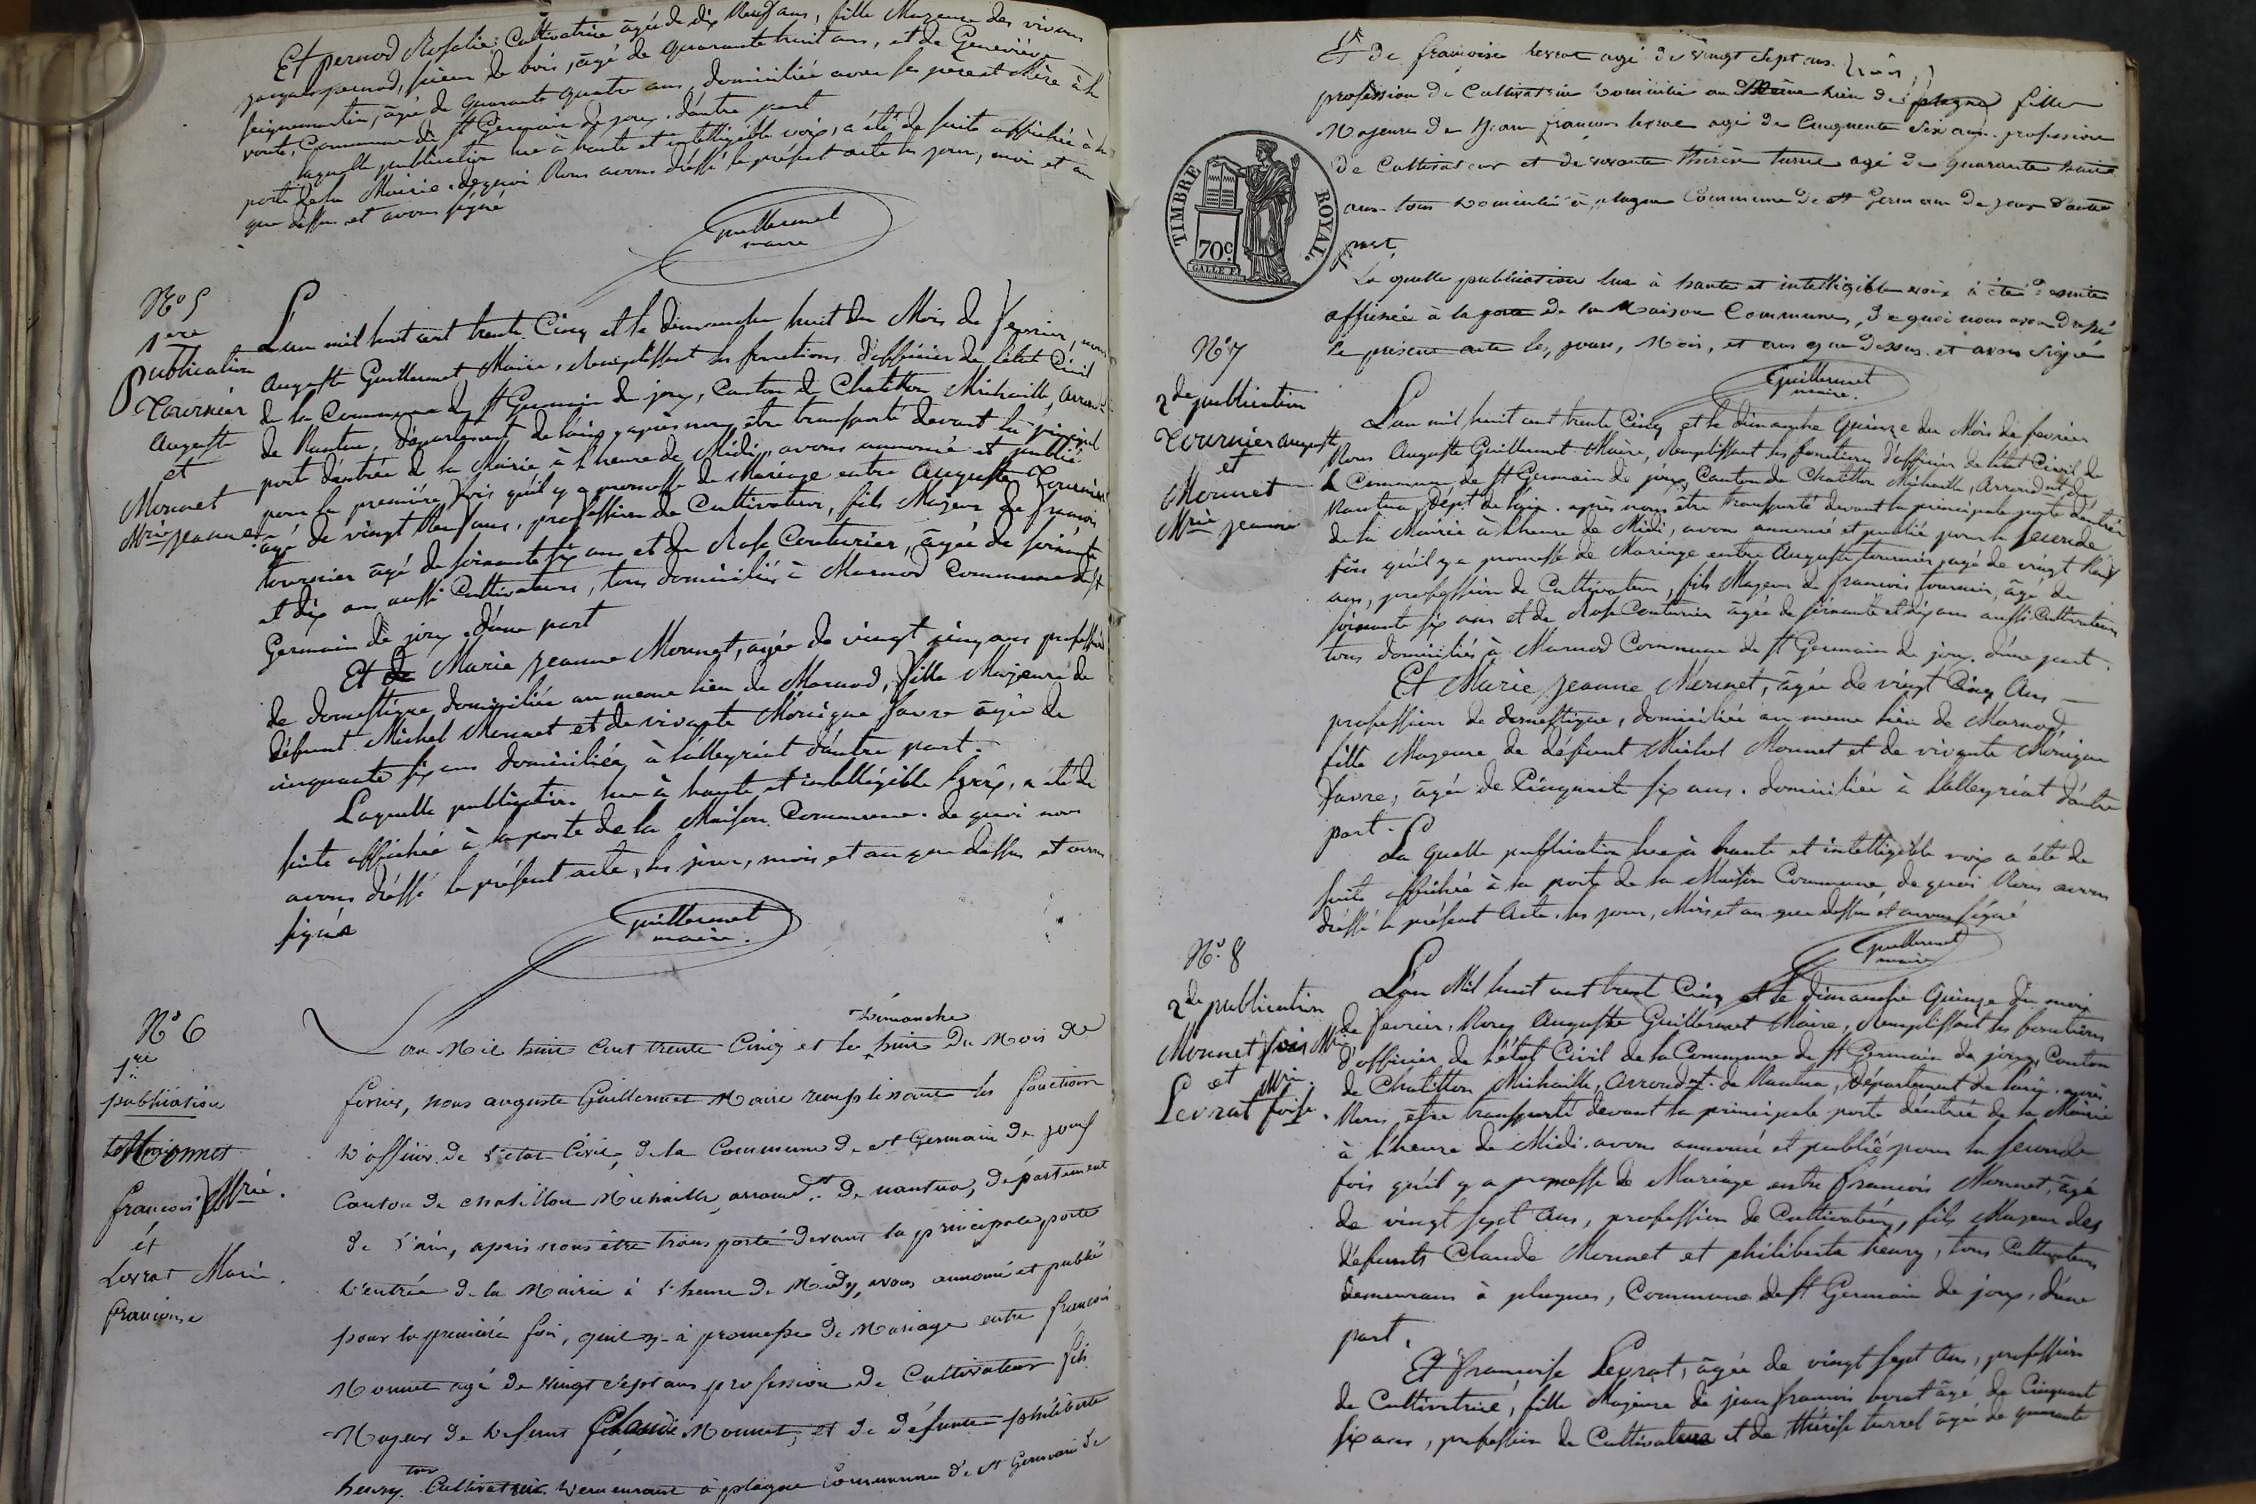 Et pernod Rosalie Cultivatrice âgée de dix Neuf ans, fille Mageure des vivans
jacques pernod, sieur de bois, âgé de quarante huit ans, et de Geneviève
seignemartin, âgée de quarante quatre ans, domiciliée avec ses père et Mère à la
voute, Commune de St Germain de joux. d'autre part
laquelle publication lue à haute et intelligible voix, a été de suite affichée à la
porte de la Mairie. de quoi Nous avons dréssé le présent acte les jour, mois et an
que dessus et avons signé
Guillermet
maire
N° 5
1ere
publication
Tournier
Auguste
et
Monnet
Mrie jeanne
L'an mil huit cent trente Cinq et le dimanche huit du Mois de fevrier, nous
Auguste Guillermet Maire, Remplissant les fonctions d'officier de l'état Civil
de la Commune de St Germain de joux, Canton de Chatillon Michaille, arrond
de Nantua, département de l'ain, après nous être transporté devant la principal
porte d'entrée de la Mairie à l'heure de Midi, avons annoncé et publié
pour la première fois qu'il y a promesse de Mariage entre Auguste Tournier
âgé de vingt Neuf ans, profession de Cultivateur, fils Mageur de François
tournier âgé de soixante six ans et de Rose Couturier, âgée de soixante
et dix ans aussi Cultivateurs, tous domiciliés à Marnod Commune de St
Germain de joux. d'une part
Et de Marie jeanne Monnet, agée de vingt cinq ans profession
de domestique domiciliée au meme lieu de Marnod, fille Majeure de
défunt Michel Monnet et de vivante Monique favre âgée de
cinquante six ans domiciliée à lalleyriat d'autre part.
Laquelle publication lue à haute et intelligible voix, a été de
suite affichée à la porte de la Maison Commune. de quoi nous
avons dréssé le présent acte, les jour, mois et an que dessus et avons
signé
Guillermet
maire.
N° 6
1re
publication
Monnet
françois Mrie.
et
Levrat Marie
françoise
Dimanche
L'an Mil huit Cent trente Cinq et le huit du Mois de
fevrier, nous auguste Guillermet Maire remplissant les fonction
d'officier de l'etat Civil, de la Commune de St Germain de joux
Canton de Chatillon Michaille, arrond.t de nantua, département
de l'ain, après nous être transporté devant la principale porte
d'entrée de la Mairie à l'heure de Midy, avons annoncé et publié
pour la première fois, qu'il y a promesse de Mariage entre françois
Monnet agé de vingt Sept ans profession de Cultivateur fils
Majeur de defunt Claude Monnet, et de défunte philiberte
henry tous Cultivateur demeurant à plagne Commune de St Germain de
Et de françoise levrat agé de vingt Sept ans.
profession de Cultivatrice domicilié au Même lieu de plagne fille
Majeure de Jean françois levrat agé de Cinquente Six ans. profession
de Cultivateur et de vivante thérèse turrel agé de quarante huit
ans. tous domicilié à plagne Commune de St Germain de joux d'autre
part
TIMBRE ROYAL.
70c
La quelle publication lue à haute et intelligible voix à été de suite
affichée à la porte de la Maison Commune, de quoi nous avon dressé
le présent acte les, jour, Mois, et an que dessus et avons Signé
Guillermet
maire.
N° 7
2de publication
Tournier Auguste
et
Monnet
Mrie jeanne
L'an mil huit cent trente Cinq et le dimanche quinze du Mois de fevrier
Nous Auguste Guillermet Maire, Remplissant les fonctions d'officier de l'état Civil de
la Commune de St Germain de joux, Canton de Chatillon Michaille, Arrondmt de
Nantua, Dépt de l'ain. après nous être transporté devant la principale porte d'entrée
de la Mairie à l'heure de Midi, avons annoncé et publié pour la seconde
fois qu'il y a promesse de Mariage entre Auguste tournier, agé de vingt Neuf
ans, profession de Cultivateur, fils Mageur de françois tournier, âgé de
soixante six ans et de Rose Couturier âgée de soixante et dix ans aussi Cultivateurs
tous domiciliés à Marnod Commune de St Germain de joux. d'une part.
Et Marie jeanne Monnet, âgée de vingt Cinq Ans
profession de domestique, domiciliée au meme lieu de Marnod,
fille Mageure de défunt Michel Monnet et de vivante Monique
favre, âgée de Cinquante six ans. domiciliée à lalleyriat d'autre
part.
La quelle publication lue à haute et intelligible voix a été de
suite affichée à la porte de la Maison Commune, de quoi Nous avons
dréssé le présent Acte. les jour, Mois et an que dessus et avons signé
Guillermet
maire
N° 8
2de publication
Monnet fois Mrie
et
Levrat foise Mrie.
L'an Mil huit cent trente Cinq et le dimanche quinze du mois
de fevrier. Nous Auguste Guillermet Maire, Remplissant les fonctions
d'officier de l'état Civil de la Commune de St Germain de joux, Canton
de Chatillon Michaille, Arrondmt. de Nantua, Département de l'ain. après
Nous être transporté devant la principale porte d'entrée de la Mairie
à l'heure de Midi. avons annoncé et publié pour la seconde
fois qu'il y a promesse de Mariage entre françois Monnet, âgé
de vingt sept ans, profession de Cultivateur, fils Mageur des
défunts Claude Monnet et philiberte henry, tous Cultivateurs
demeurans à plagnes, Commune de St Germain de joux, d'une
part,
Et françoise Levrat, âgée de vingt sept Ans, profession
de Cultivatrice, fille Mageure de jean françois levrat âgé de Cinquante
six ans, profession de Cultivateur et de thérèse turrel âgée de quarante